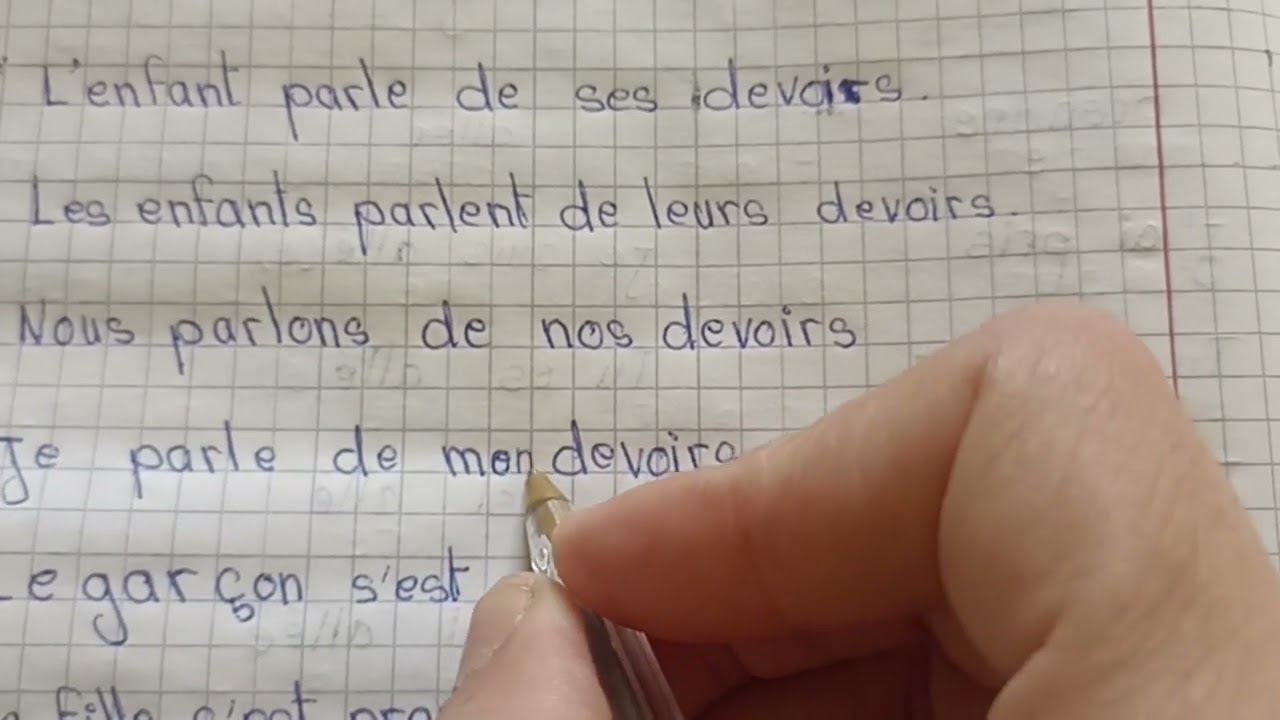 L'enfant parle de ses devoirs.
Les enfants parlent de leurs devoirs.
Nous parlons de nos devoirs
Je parle de mon devoirs
Le garçon s'est
fille s'est